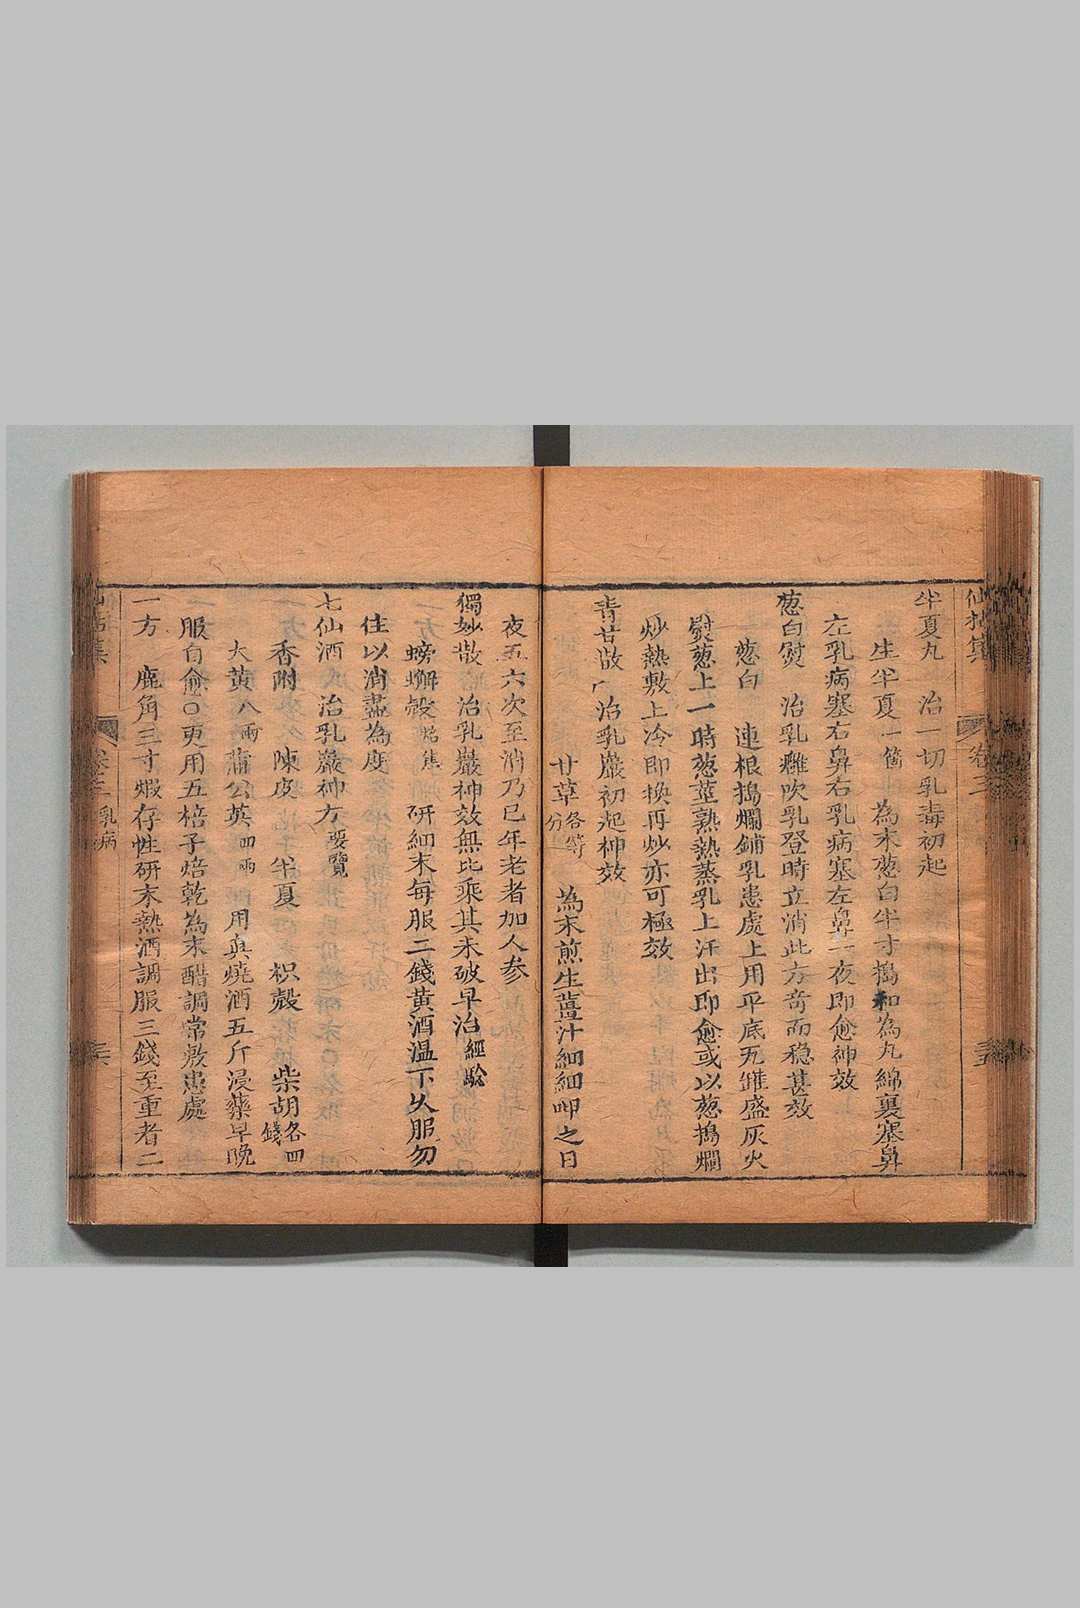 半夏丸 治一切乳毒初起
生半夏一箇 為末葱白半寸搗和為丸綿裹塞鼻
左乳病塞右鼻右乳病塞左鼻一夜即愈神效
葱白熨 治乳癰吹乳登時立消此方奇而穩甚效
葱白 連根搗爛鋪乳患處上用平底瓦雄盛灰火
熨葱上一時葱莖熟熱蒸乳上汗出即愈或以葱搗爛
炒熱敷上冷即換再炒亦可極效
青甘散 治乳巖初起神效
甘草 各等分 為末煎生薑汁細細呷之日
夜五六次至消乃已年老者加人參
獨妙散 治乳巖神效無比乘其未破早治 經驗
螃蠏殼 焙焦 研細末每服二錢黃酒溫下久服勿
住以消盡為度
七仙酒 治乳巖神方 要覽
香附 陳皮 半夏 枳殼 柴胡 各四錢
大黃八兩 蒲公英四兩 用真燒酒五斤浸藥早晚
服自愈○更用五棓子焙乾為末醋調常敷患處
一方 鹿角三寸煅存性研末熱酒調服三錢至重者二
卷三 乳病